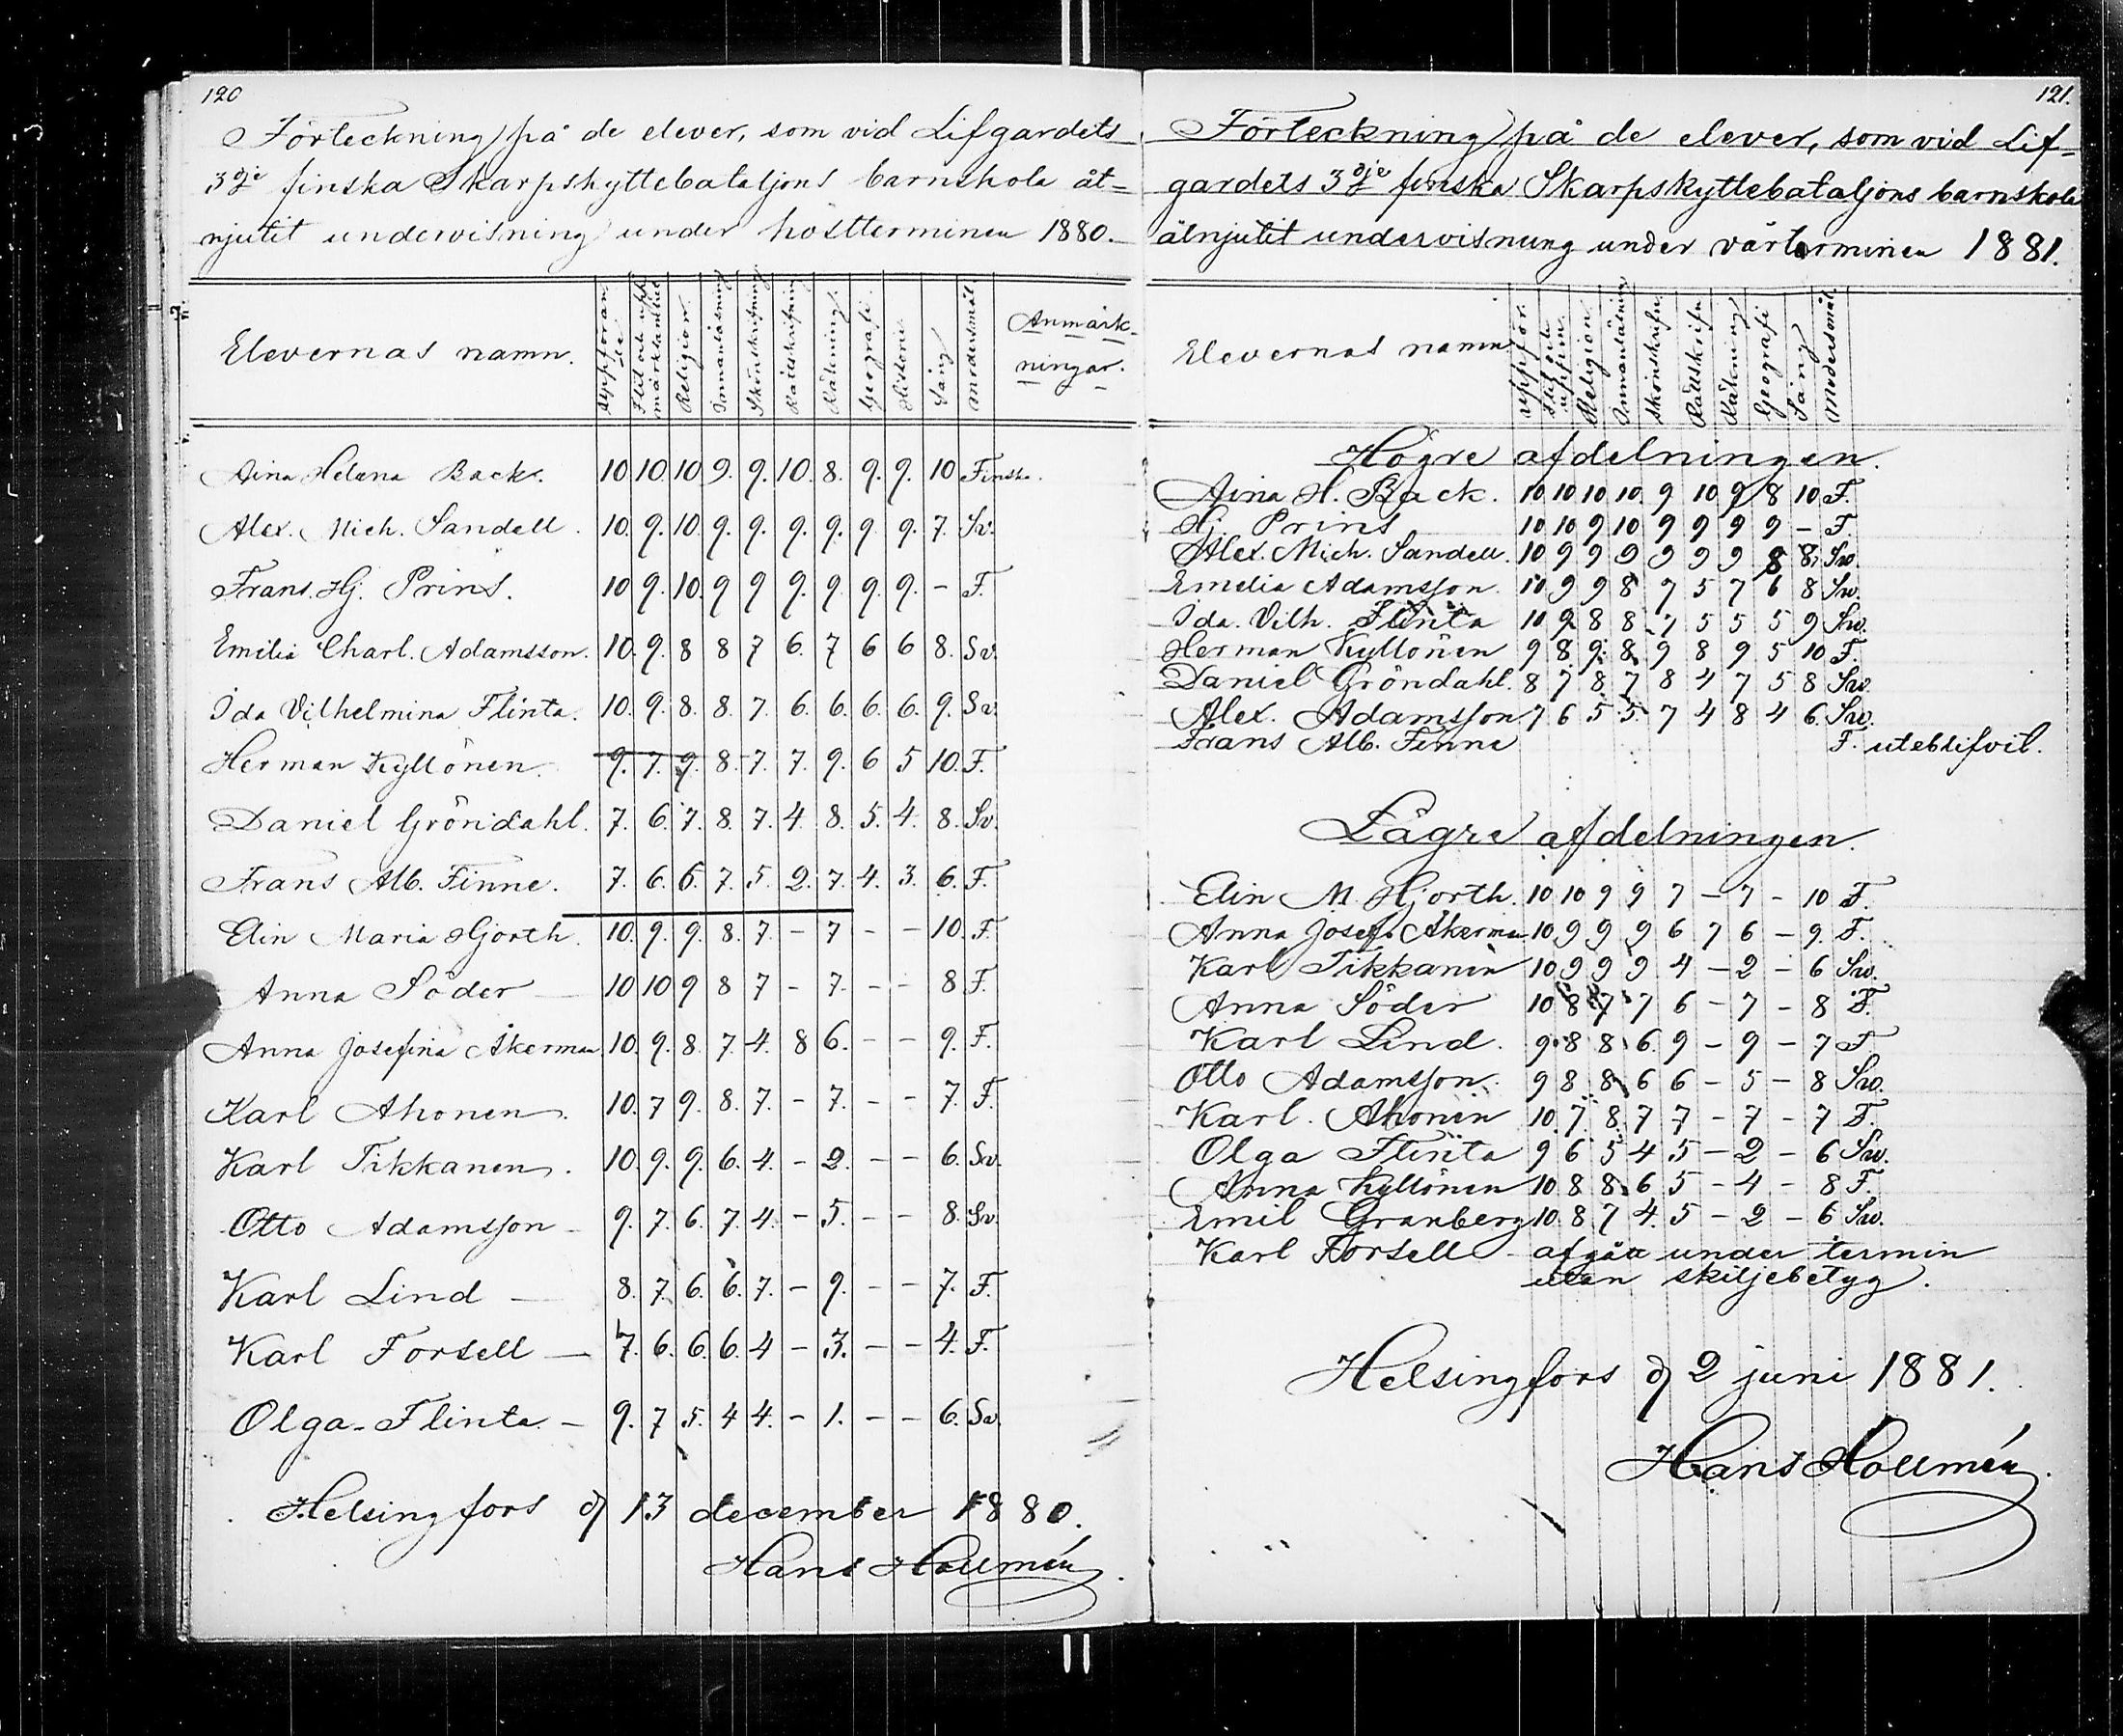 120
Förteckning på de elever, som vid Lifgardets
3dje finska Skarpskyttebataljons barnskola åt-
njutit undervisning under höstterminen 1880.
Elevernas namn. Uppförande. Flit och uppmärksamhet Religion. Innanläsning Skönskrifning Rättskrifning Räkning. Geografi. Historie. Sång Modersmål Anmärk-
ningar.
Aina Helena Back. 10 10. 10 9. 9. 10. 8. 9. 9. 10 Finska.
Alex. Mich. Sandell. 10. 9. 10. 9. 9. 9. 9. 9 9. 7. Sv.
Frans. Hj. Prins. 10 9. 10. 9 9 9. 9. 9. 9. - F.
Emilia Charl. Adamsson. 10. 9. 8 8 7 6. 7 6 6 8. Sv.
Ida Vilhelmina Flinta. 10. 9. 8. 8. 7. 6. 6. 6. 6. 9. Sv.
Herman Kyllönen. 9. 7. 9. 8. 7. 7. 9. 6 5 10. F.
Daniel Gröndahl. 7. 6. 7. 8. 7. 4. 8. 5. 4. 8. Sv.
Frans Alb. Finne. 7. 6. 6. 7. 5. 2. 7. 4. 3. 6. F.
Elin Maria Hjorth. 10. 9. 9. 8. 7. - 7 - - 10. F.
Anna Söder — 10 10 9 8 7 - 7. - - 8 F.
Anna Josefina Åkerman 10. 9. 8. 7. 4. 8 6. - - 9. F.
Karl Ahonen. 10. 7 9. 8. 7. - 7. - - 7. F.
Karl Tikkanen. 10. 9. 9. 6. 4. - 2. - - 6. Sv.
Otto Adamsson - 9. 7. 6. 7. 4. - 5. - - 8. Sv.
Karl Lind — 8. 7. 6. 6. 7. - 9. - - 7. F.
Karl Forsell — 7. 6. 6. 6. 4 - 3. - - 4. F.
Olga Flinta - 9. 7 5. 4 4. - 1. - - 6. Sv.
Helsingfors d 13 december 1880.
Hans Hollmén
121.
Förteckning på de elever, som vid Lif-
gardets 3dje finska Skarpskyttebataljons barnskola
åtnjutit undervisning under vårterminen 1881.
Elevernas namn Uppför. Flit och uppm. Religion Innanläsning Skönskrifn. Rättskrifn Räkning Geografi Sång Modersmål.
Högre afdelningen.
Aina H. Back. 10 10 10 10. 9 10 9 8 10 F.
Hj. Prins 10 10 9 10 9 9 9 9 - F.
Alex. Mich. Sandell. 10 9 9 9 9 9 9 8 8. Sv.
Emelia Adamsson. 10 9 9 8 7 5 7 6 8 Sv.
Ida. Vilh. Flinta 10 9 8 8 7 5 5 5 9 Sv.
Herman Kyllönen 9 8 9 8 9 8 9 5 10 F.
Daniel Gröndahl. 8 7 8 7 8 4 7 5 8 Sv.
Alex. Adamsson 7 6 5 5 7 4 8 4 6. Sv.
Frans Alb. Finne F. uteblifvit.
Lägre afdelningen.
Elin M. Hjorth. 10 10 9 9 7 - 7 - 10 F.
Anna Josef. Åkerman 10 9 9 9 6 7 6 - 9. F.
Karl Tikkanen 10 9 9 9 4 - 2 - 6 Sv.
Anna Söder 10 8 7 7 6 - 7 - 8 F.
Karl Lind. 9 8 8 6 9 - 9 - 7 F
Otto Adamsson. 9 8 8 6 6 - 5 - 8 Sv.
Karl. Ahonen 10 7 8 7 7 - 7 - 7 F.
Olga Flinta 9 6 5 4 5 - 2 - 6 Sv.
Anna Kyllönen 10 8 8 6 5 - 4 - 8 F.
Emil Granberg 10 8 7 4 5 - 2 - 6 Sv.
Karl Forsell afgått under termin
utan skiljebetyg.
Helsingfors d 2 juni 1881.
Hans Hollmén.